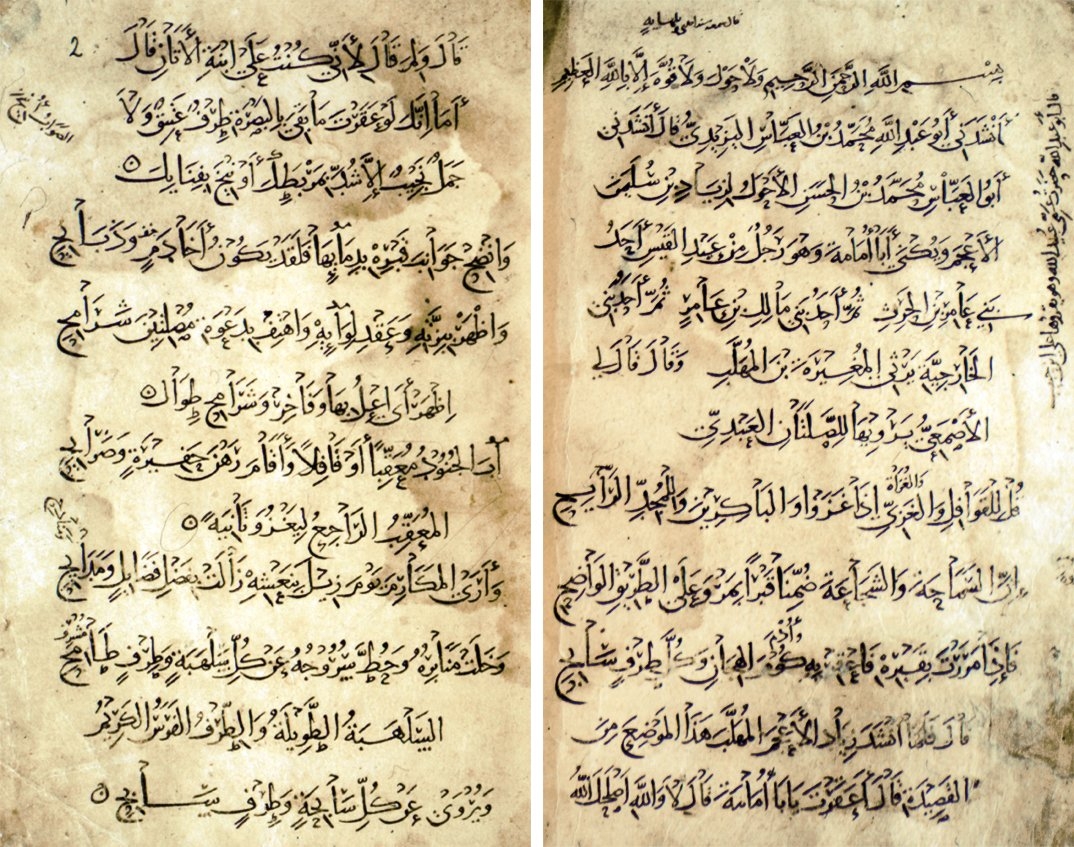 بسم الله الرحمن الرحيم ولا حول ولا قوة إلا بالله العظيم
أنشدني أبو عبد الله محمد بن العباس اليزيدي قال أنشدني
أبو العباس محمد بن الحسن الأحول لزياد بن سليمن
الأعجم ويكنى أبا أمامة وهو رجل من عبد القيس أحد
بني عامر بن الحرث ثم أحد بني مالك بن عامر ثم أحد بني
الخارجية يرثي المغيرة بن المهلب وقال قال لي
الأصمعي يرويها للصلتان العبدي
والغزاة
قل للقوافل والغزي إذا غزوا والباكرين وللمجد الرائح
إن السماحة والشجاعة ضمنا قبرا بمرو على الطريق الواضح
وأدم
فإذا مررت بقبره فاعقر به كوم الهجان وكل طرف سابح
قال فلما أنشد زياد الأعجم المهلب هذا الموضع من
القصيدة قال أعقرت يابا أمامة قال لا والله أصلحك الله
2
قال ولم قال لأني كنت على ابنة الأتان قال
أما إنك لو عقرت ما بقي بالبصرة طرف عتيق ولا
جمل نجيب إلا شد بمربطك أو نيخ بفنائك
الصواب أنيخ
وانضح جوانب قبره بدمائها فلقد يكون أخا دم وذبائح
واظهر ببزته وعقد لوائه واهتف بدعوة مصلتين شرامح
اظهر أي اعل بها وفاخر وشرامح طوال
آب الجنود معقبا أو قافلا وأقام رهن حفيرة وضرائح
المعقب الراجع لغزو ثانية
وأرى المكارم يوم زيل بنعشه زالت بفضل فضائل ومدائح
وخلت منابره وحط سروجه عن كل سلهبة وطرف طامح
السلهبة الطويلة والطرف الفرس الكريم
ويروى عن كل سابحة وطرف سابح